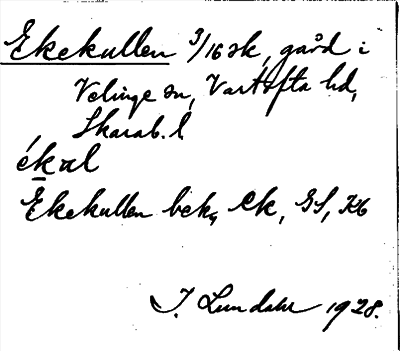 Ekekullen 3/16 sk, gård i
Velinge sn, Vartofta hd,
Skarab. l.
ékal
Ekekullen bek, ek, GS, Kb
I. Lundahl 1928.